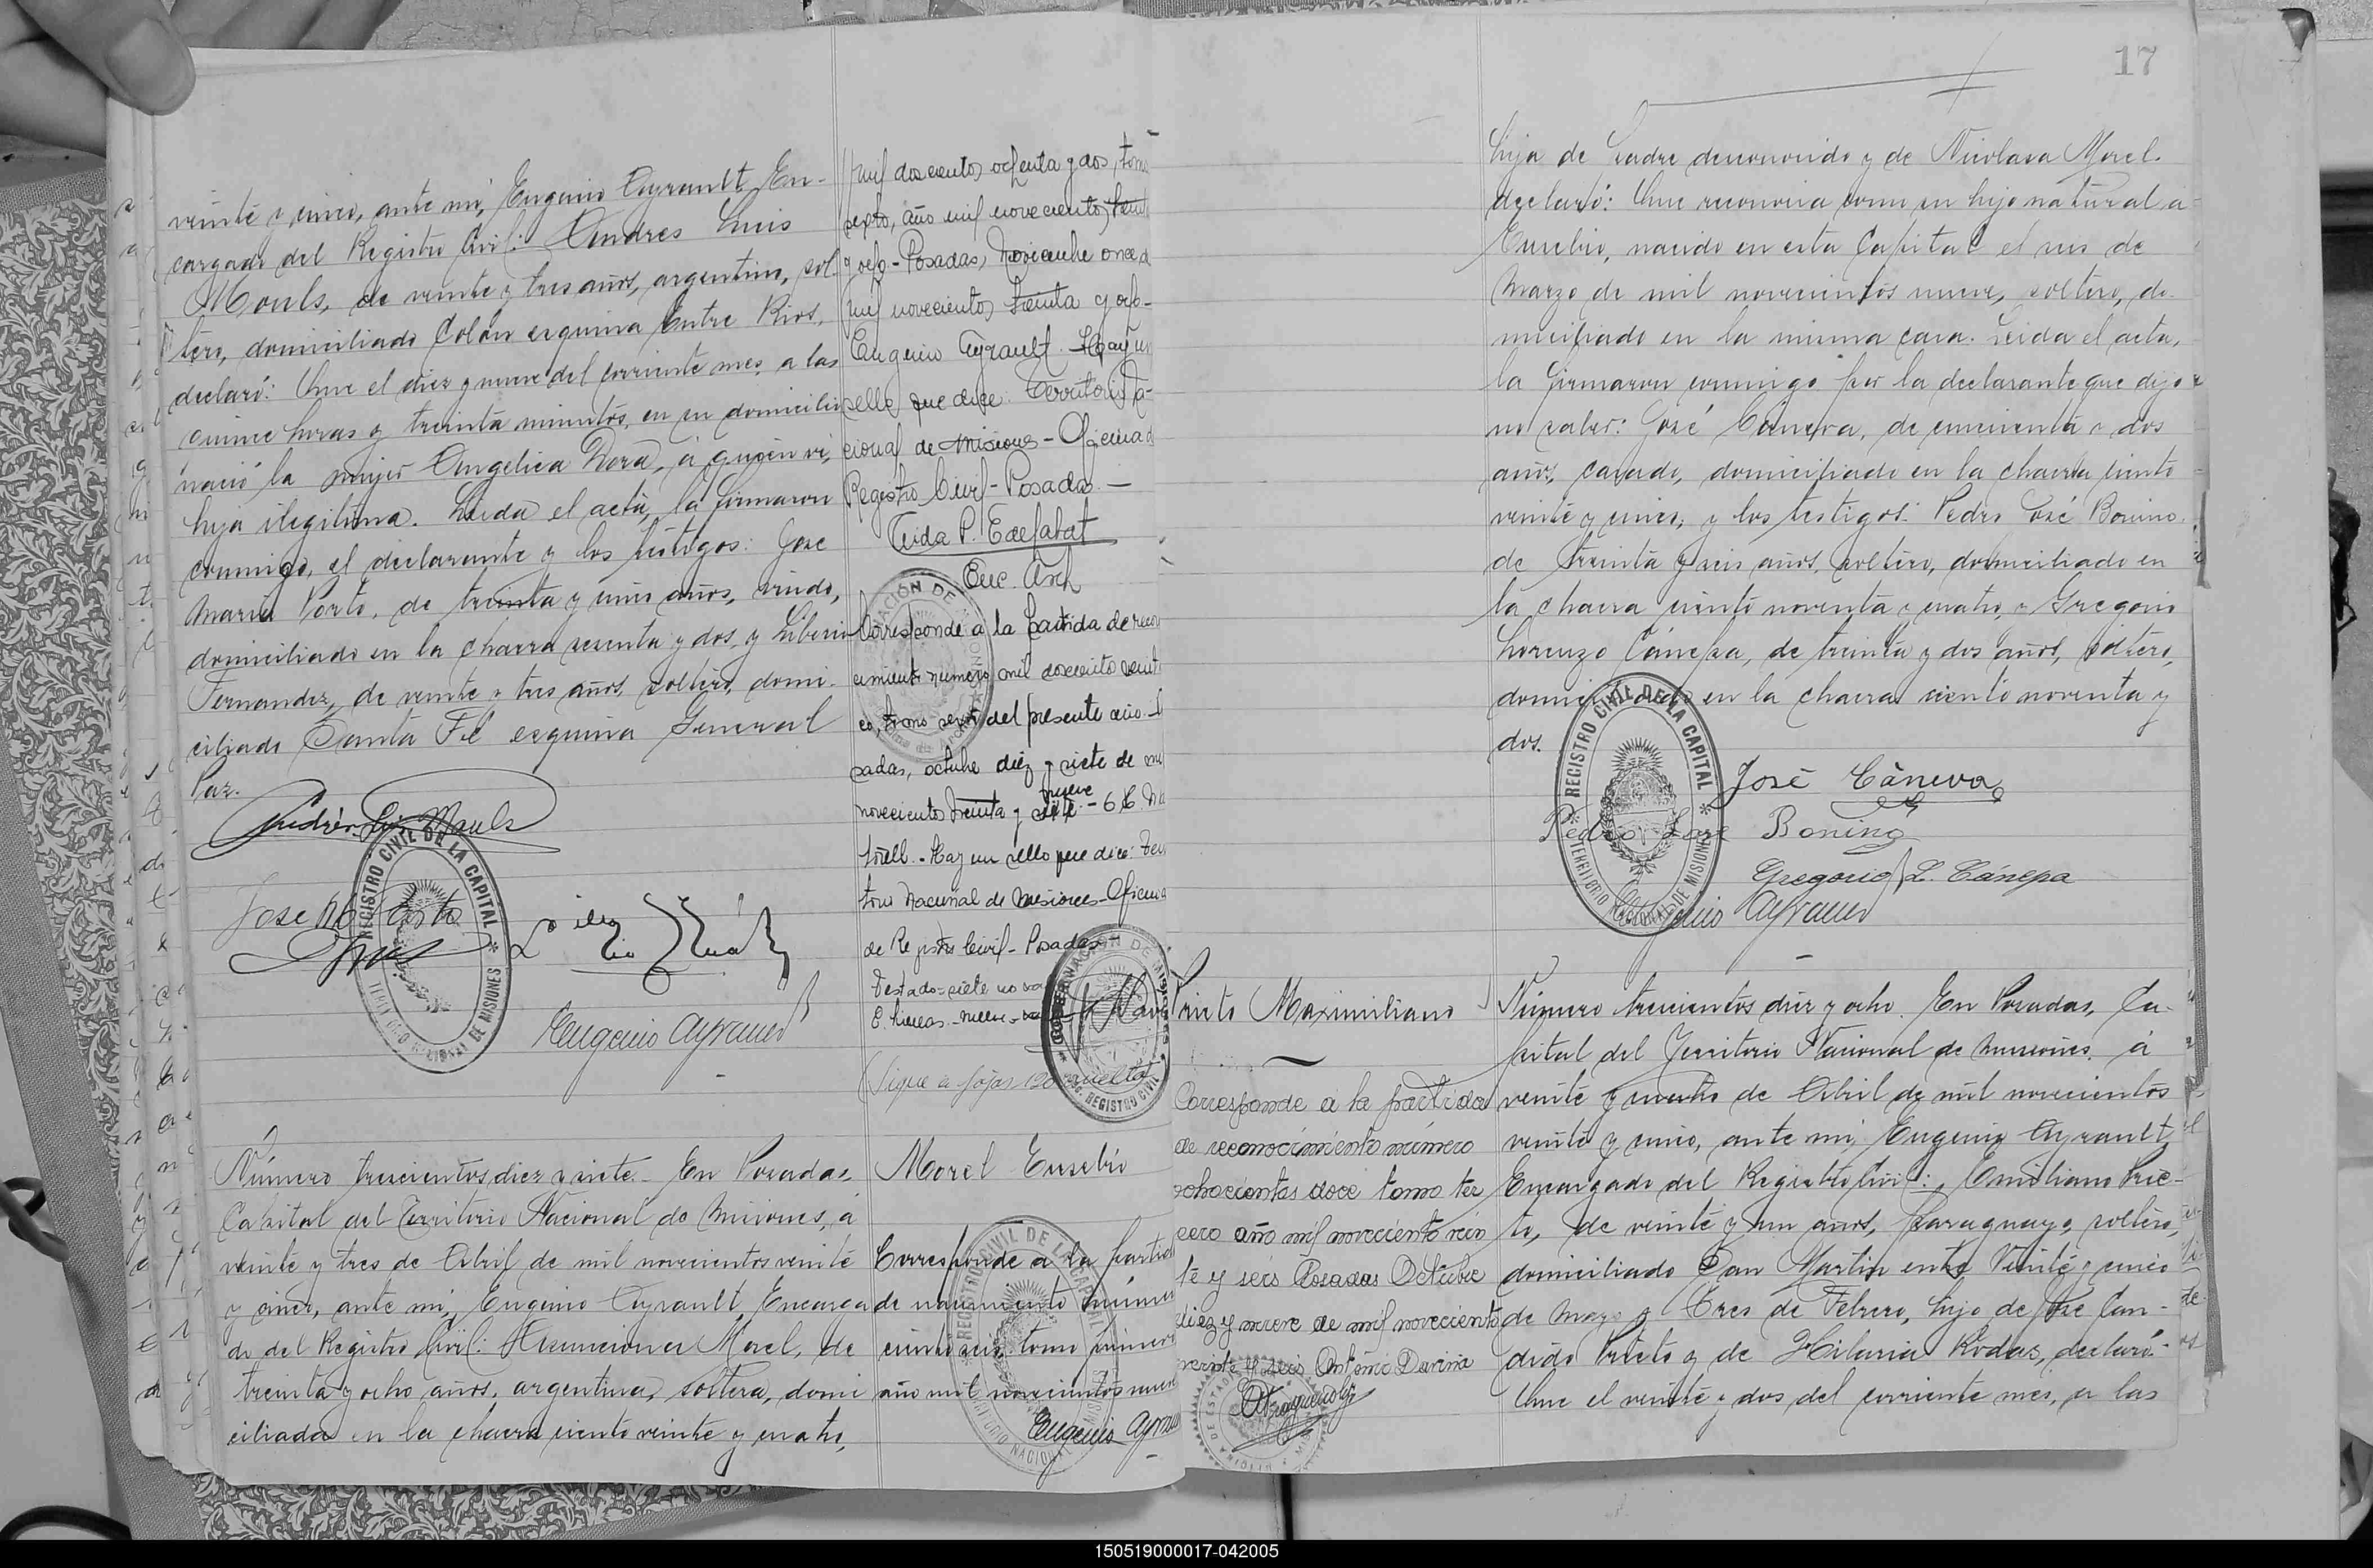 veinte y cinco, ante mí, Eugenio Ayrault, En-
cargado del Registro Civil: Andres Luis
Mouls, de veinte y tres años, argentino, sol-
tero, domiciliado Colón esquina Entre Rios,
declaró: Que el diez y nueve del corriente mes, a las
quince horas y treinta minutos, en su domicilio
nació la mujer Angélica Dora, á quien vi,
hija ilegitima. Leída el acta, la firmaron
conmigo, el declarante y los testigos: José
María Porto, de treinta y cinco años, viudo,
domiciliado en la chacra sesenta y dos, y Liborio
Fernandez, de veinte y tres años, soltero, domi-
ciliado Santa Fé esquina General
Paz.
Andrés Luis Mouls
José M. Porto
Eugenio Ayrault
mil doscientos ochenta y dos, tomo
sexto, año mil novecientos treinta
y ocho - Posadas, Noviembre once de
mil novecientos treinta y ocho-
Eugenio Ayrault. Hay un
sello que dice: Territorio Na-
cional de Misiones - Oficina d
Registro Civil - Posadas. -
Enc. Arch
Corresponde a la partida de recono
cimiento número mil doscientos
tomo sexto del presente año.-
sadas, octubre diez y siete de mil
nueve
novecientos treinta y siete.-
Hay un sello que dice: Terri
torio Nacional de Misiones - Oficina
de Registro Civil - Posadas -
Testado = siete no va
E. lineas - nueve -
(Sigue a fojas vuelta)
REGISTRO CIVIL DE LA CAPITAL
TERRITORIO NACIONAL DE MISIONES
Número trescientos diez y siete. En Posadas,
Capital del Territorio Nacional de Misiones, á
veinte y tres de Abril de mil novecientos veinte
y cinco, ante mí, Eugenio Ayrault, Encarga
do del Registro Civil: Asunciona Morel, de
treinta y ocho años, argentina, soltera, domi
ciliada en la chacra ciento veinte y cuatro,
Morel Eusebio
Corresponde a la partid
de nacimiento número
ciento seis, tomo primero
año mil novecientos nueve
Eugenio Ayrau
17
hija de padre desconocido y de Nicolasa Morel.
declaró: Que reconocía como su hijo natural a
Eusebio, nacido en esta Capital el seis de
Marzo de mil novecientos nueve, soltero, do-
miciliado en la misma casa. Leída el acta,
la firmaron conmigo por la declarante que dijo
no saber: José Cáneva, de cincuenta y dos
años, casado, domiciliado en la chacra ciento
veinte y cinco, y los testigos: Pedro José Bonino
de treinta y seis años, soltero, domiciliado en
la chacra ciento noventa y cuatro, y Gregorio
Lorenzo Cánepa, de treinta y dos años, soltero,
domiciliado en la chacra ciento noventa y
dos.
José Cáneva
Pedro José Bonino
Gregorio L. Cánepa
Eugenio Ayrault
REGISTRO CIVIL DE LA CAPITAL
TERRITORIO NACIONAL DE MISIONES
Prieto Maximiliano
Corresponde a la partida
de reconocimiento número
ochocientos doce tomo ter
cero año mil novecientos vein
te y seis Posadas Octubre
diez y nueve de mil novecientos
veinte y seis
Número trescientos diez y ocho. En Posadas, Ca-
pital del Territorio Nacional de Misiones, á
veinte y cuatro de Abril de mil novecientos
veinte y cinco, ante mí, Eugenio Ayrault,
Encargado del Registro Civil: Emiliano Prie-
to, de veinte y un años, paraguayo, soltero,
domiciliado San Martin entre Veinte y cinco
de Mayo y Tres de Febrero, hijo de José Can-
dido Prieto y de Hilaria Rodas, declaró:
Que el veinte y dos del corriente mes, a las
150519000017-042005